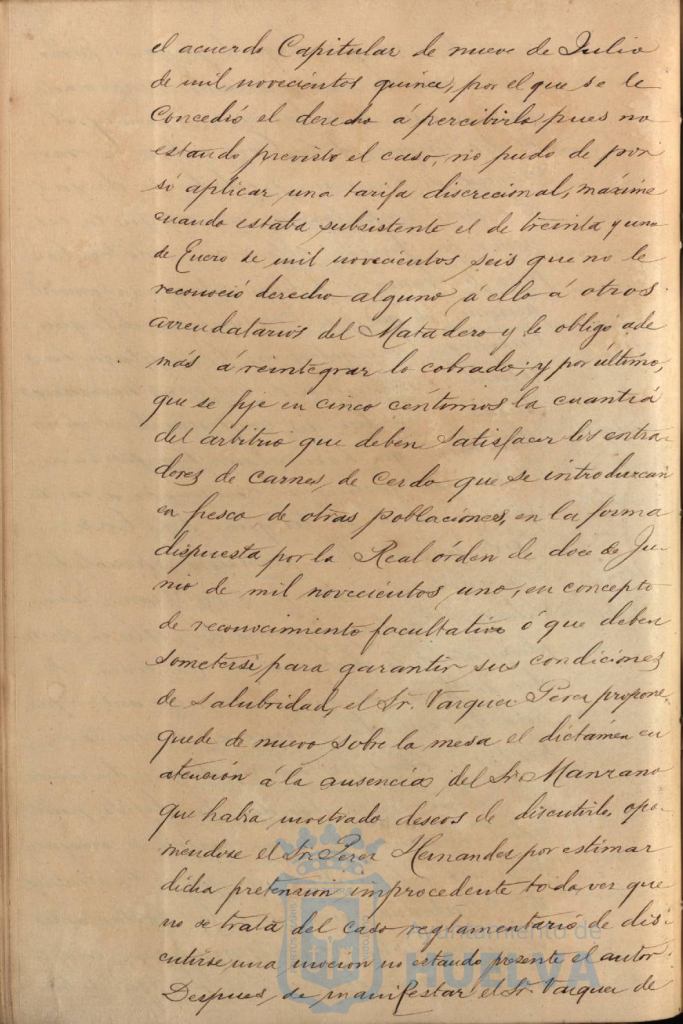 el acuerdo Capitular de nueve de Julio
de mil novecientos quince, por el que se le
Concedió el derecho á percibirlo pues no
estando previsto el caso, no pudo de por
si aplicar una tarifa discrecional, máxime
cuando estaba subsistente el de treinta y uno
de Enero de mil novecientos seis que no le
reconoció derecho alguno á ello á otros
arrendatarios del Matadero y le obligó ade
más á reintegrar lo cobrado; y por último,
que se fije en cinco céntimos la cuantía
del arbitrio que deben satisfacer los entra-
dores de carnes de Cerdo que se introduzcan
en fresco de otras poblaciones, en la forma
dispuesta por la Real órden de doce de Ju-
nio de mil novecientos uno, en concepto
de reconocimiento facultativo ó que deben
someterse para garantir sus condiciones
de salubridad, el Sr. Vazquez Perez propone
quede de nuevo sobre la mesa el dictámen en
atención á la ausencia del Sr. Manzano
que habia mostrado deseos de discutirlo, opo-
niéndose el Sr. Perez Hernandez por estimar
dicha pretension improcedente toda vez que
no se trata del caso reglamentario de dis-
cutirse una mocion no estando presente el autor.
Despues de manifestar el Sr. Vazquez de
Ayuntamiento de
HUELVA